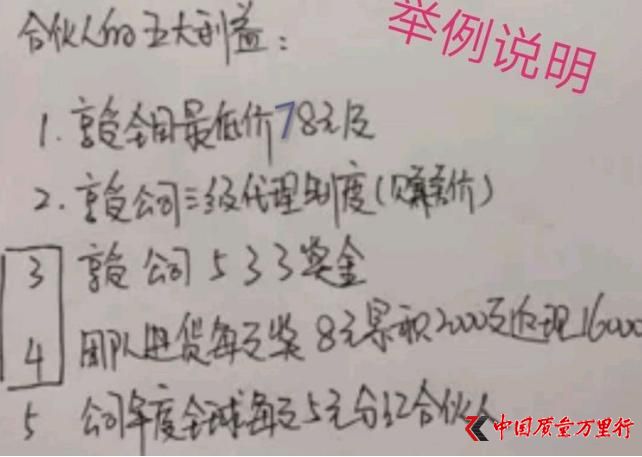 合伙人的五大利益：
举例说明
1. 享受全国最低价78元/支
2. 享受公司三级代理制度(赚差价)
3 享受公司533奖金
4 团队进货每支奖8元累积2000支返现16000
5 公司年度全球每支5元分红合伙人
中国质量万里行